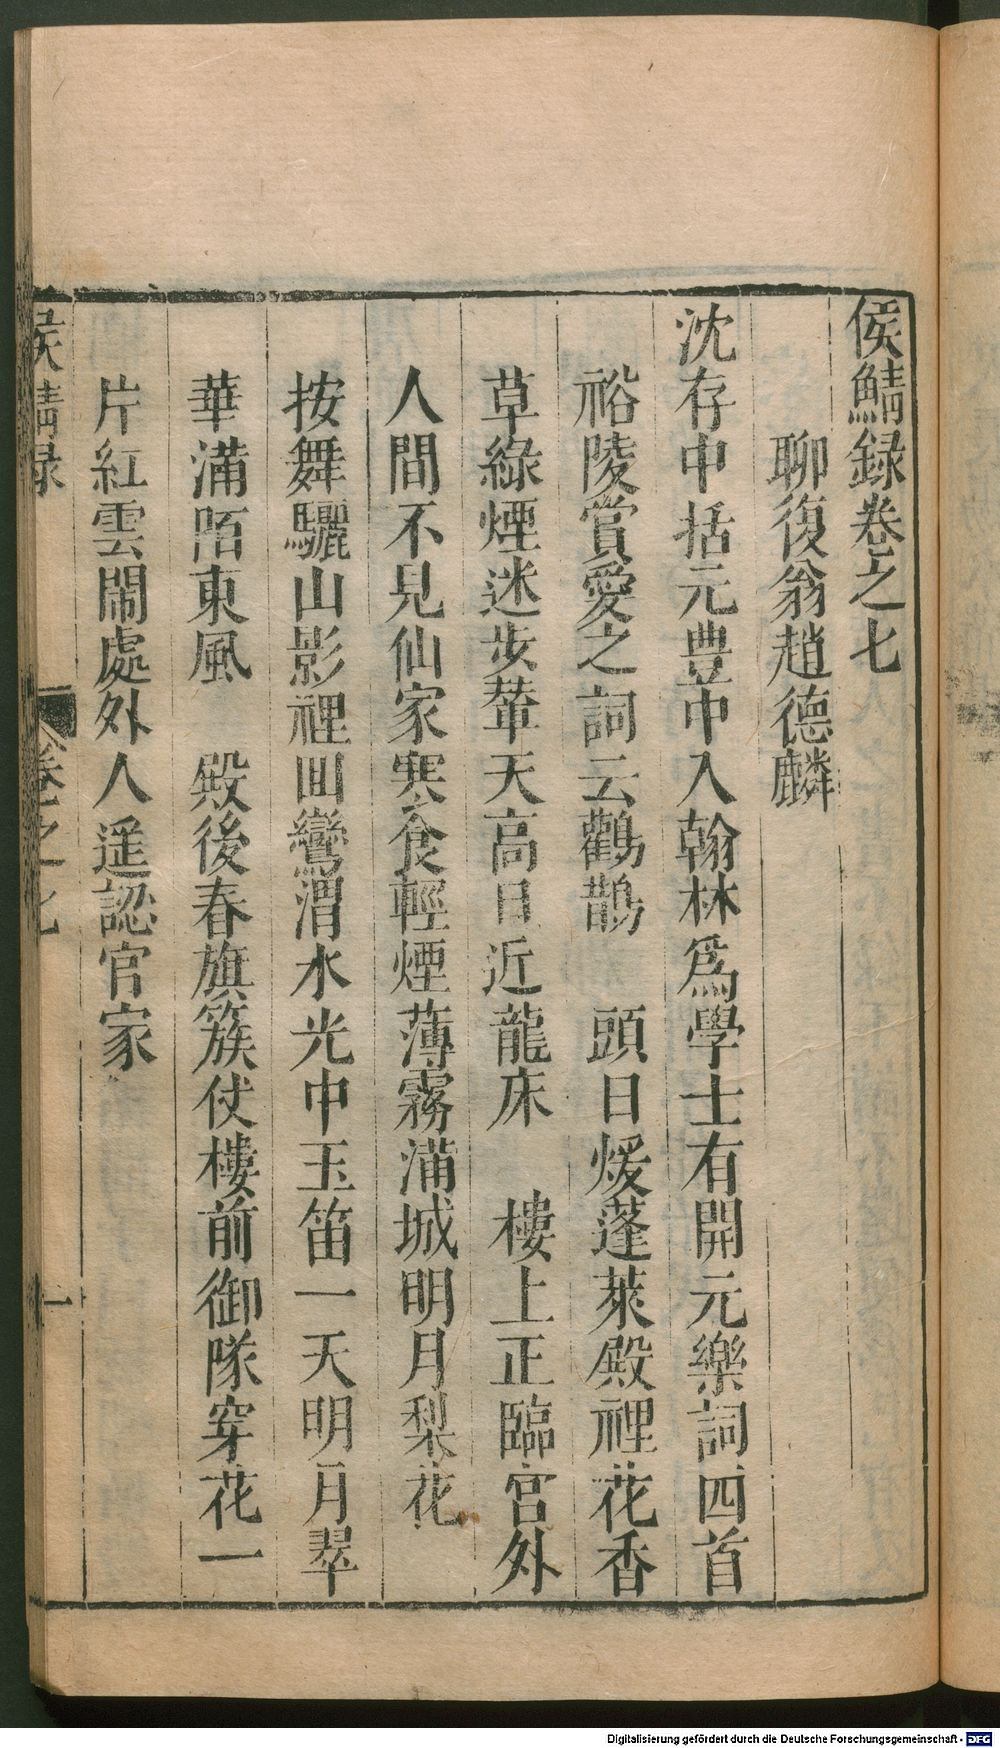 侯鯖録卷之七
聊復翁趙德麟
沈存中括元豊中入翰林爲學士有開元樂詞四首
裕陵賞愛之詞云鸛鵲　頭日煖蓬萊殿裡花香
草綠煙迷步輦天高日近龍床　樓上正臨宮外
人間不見仙家寒食輕煙薄霧滿城明月梨花
按舞驪山影裡回鸞渭水光中玉笛一天明月翠
華滿陌東風　殿後春旗簇仗樓前御隊穿花一
片紅雲鬧處外人遥認官家
侯鯖録
卷之七
一
Digitalisierung gefördert durch die Deutsche Forschungsgemeinschaft - DFG